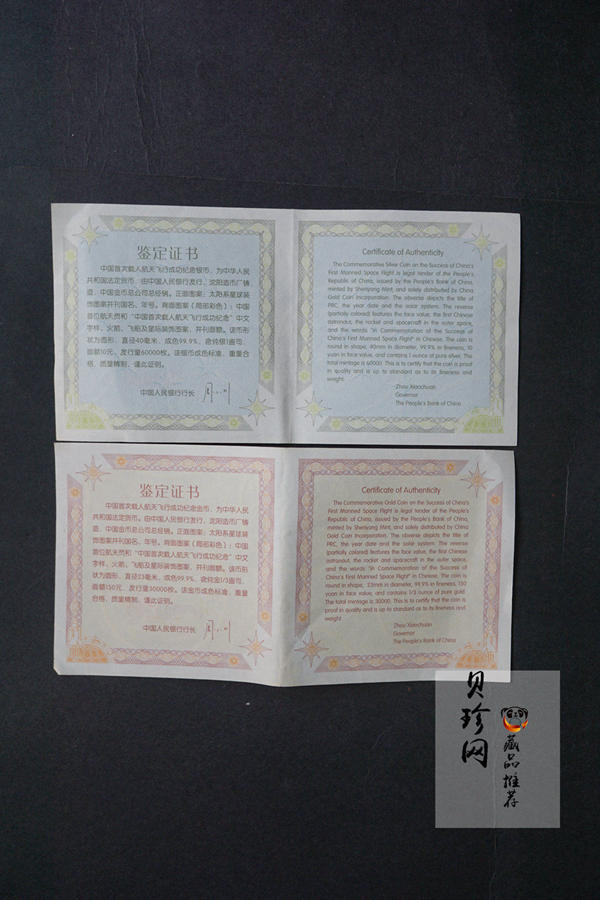 鉴定证书
中国首次载人航天飞行成功纪念银币，为中华人民
共和国法定货币，由中国人民银行发行，沈阳造币厂铸
造，中国金币总公司总经销。正面图案：太阳系星球装
饰图案并刊国名、年号。背面图案（局部彩色）：中国
首位航天员和“中国首次载人航天飞行成功纪念”中文
字样，火箭、飞船及星际装饰图案，并刊面额。该币形
状为圆形，直径40毫米，成色99.9%，含纯银1盎司，
面额10元，发行量60000枚。该银币成色标准，重量合
格，质量精制，谨此证明。
中国人民银行行长
Certificate of Authenticity
The Commemorative Silver Coin on the Success of China's
First Manned Space Flight is legal tender of the People's
Republic of China, issued by the People's Bank of China,
minted by Shenyang Mint, and solely distributed by China
Gold Coin Incorporation. The obverse depicts the title of
PRC, the year date and the solar system. The reverse
(partially colored) features the face value, the first Chinese
astronaut, the rocket and spacecraft in the outer space,
and the words "In Commemoration of the Success of
China's First Manned Space Flight" in Chinese. The coin is
round in shape, 40mm in diameter, 99.9% in fineness, 10
yuan in face value, and contains 1 ounce of pure silver. The
total mintage is 60000. This is to certify that the coin is proof
in quality and is up to standard as to its fineness and
weight.
Zhou Xiaochuan
Governor
The People's Bank of China
鉴定证书
中国首次载人航天飞行成功纪念金币，为中华人民
共和国法定货币。由中国人民银行发行，沈阳造币厂铸
造，中国金币总公司总经销。正面图案：太阳系星球装
饰图案并刊国名、年号。背面图案（局部彩色）：中国
首位航天员和“中国首次载人航天飞行成功纪念”中文
字样，火箭、飞船及星际装饰图案，并刊面额。该币形
状为圆形，直径23毫米，成色99.9%，含纯金1/3盎司，
面额150元，发行量30000枚。该金币成色标准，重量
合格，质量精制，谨此证明。
中国人民银行行长
Certificate of Authenticity
The Commemorative Gold Coin on the Success of China's
First Manned Space Flight is legal tender of the People's
Republic of China, issued by the People's Bank of China,
minted by Shenyang Mint, and solely distributed by China
Gold Coin Incorporation. The obverse depicts the title of
PRC, the year date and the solar system. The reverse
(partially colored) features the face value, the first Chinese
astronaut, the rocket and spacecraft in the outer space,
and the words "In Commemoration of the Success of
China's First Manned Space Flight" in Chinese. The coin is
round in shape, 23mm in diameter, 99.9% in fineness, 150
yuan in face value, and contains 1/3 ounce of pure gold.
The total mintage is 30000. This is to certify that the coin is
proof in quality and is up to standard as to its fineness and
weight
Zhou Xiaochuan
Governor
The People's Bank of China
贝珍网
藏品推荐